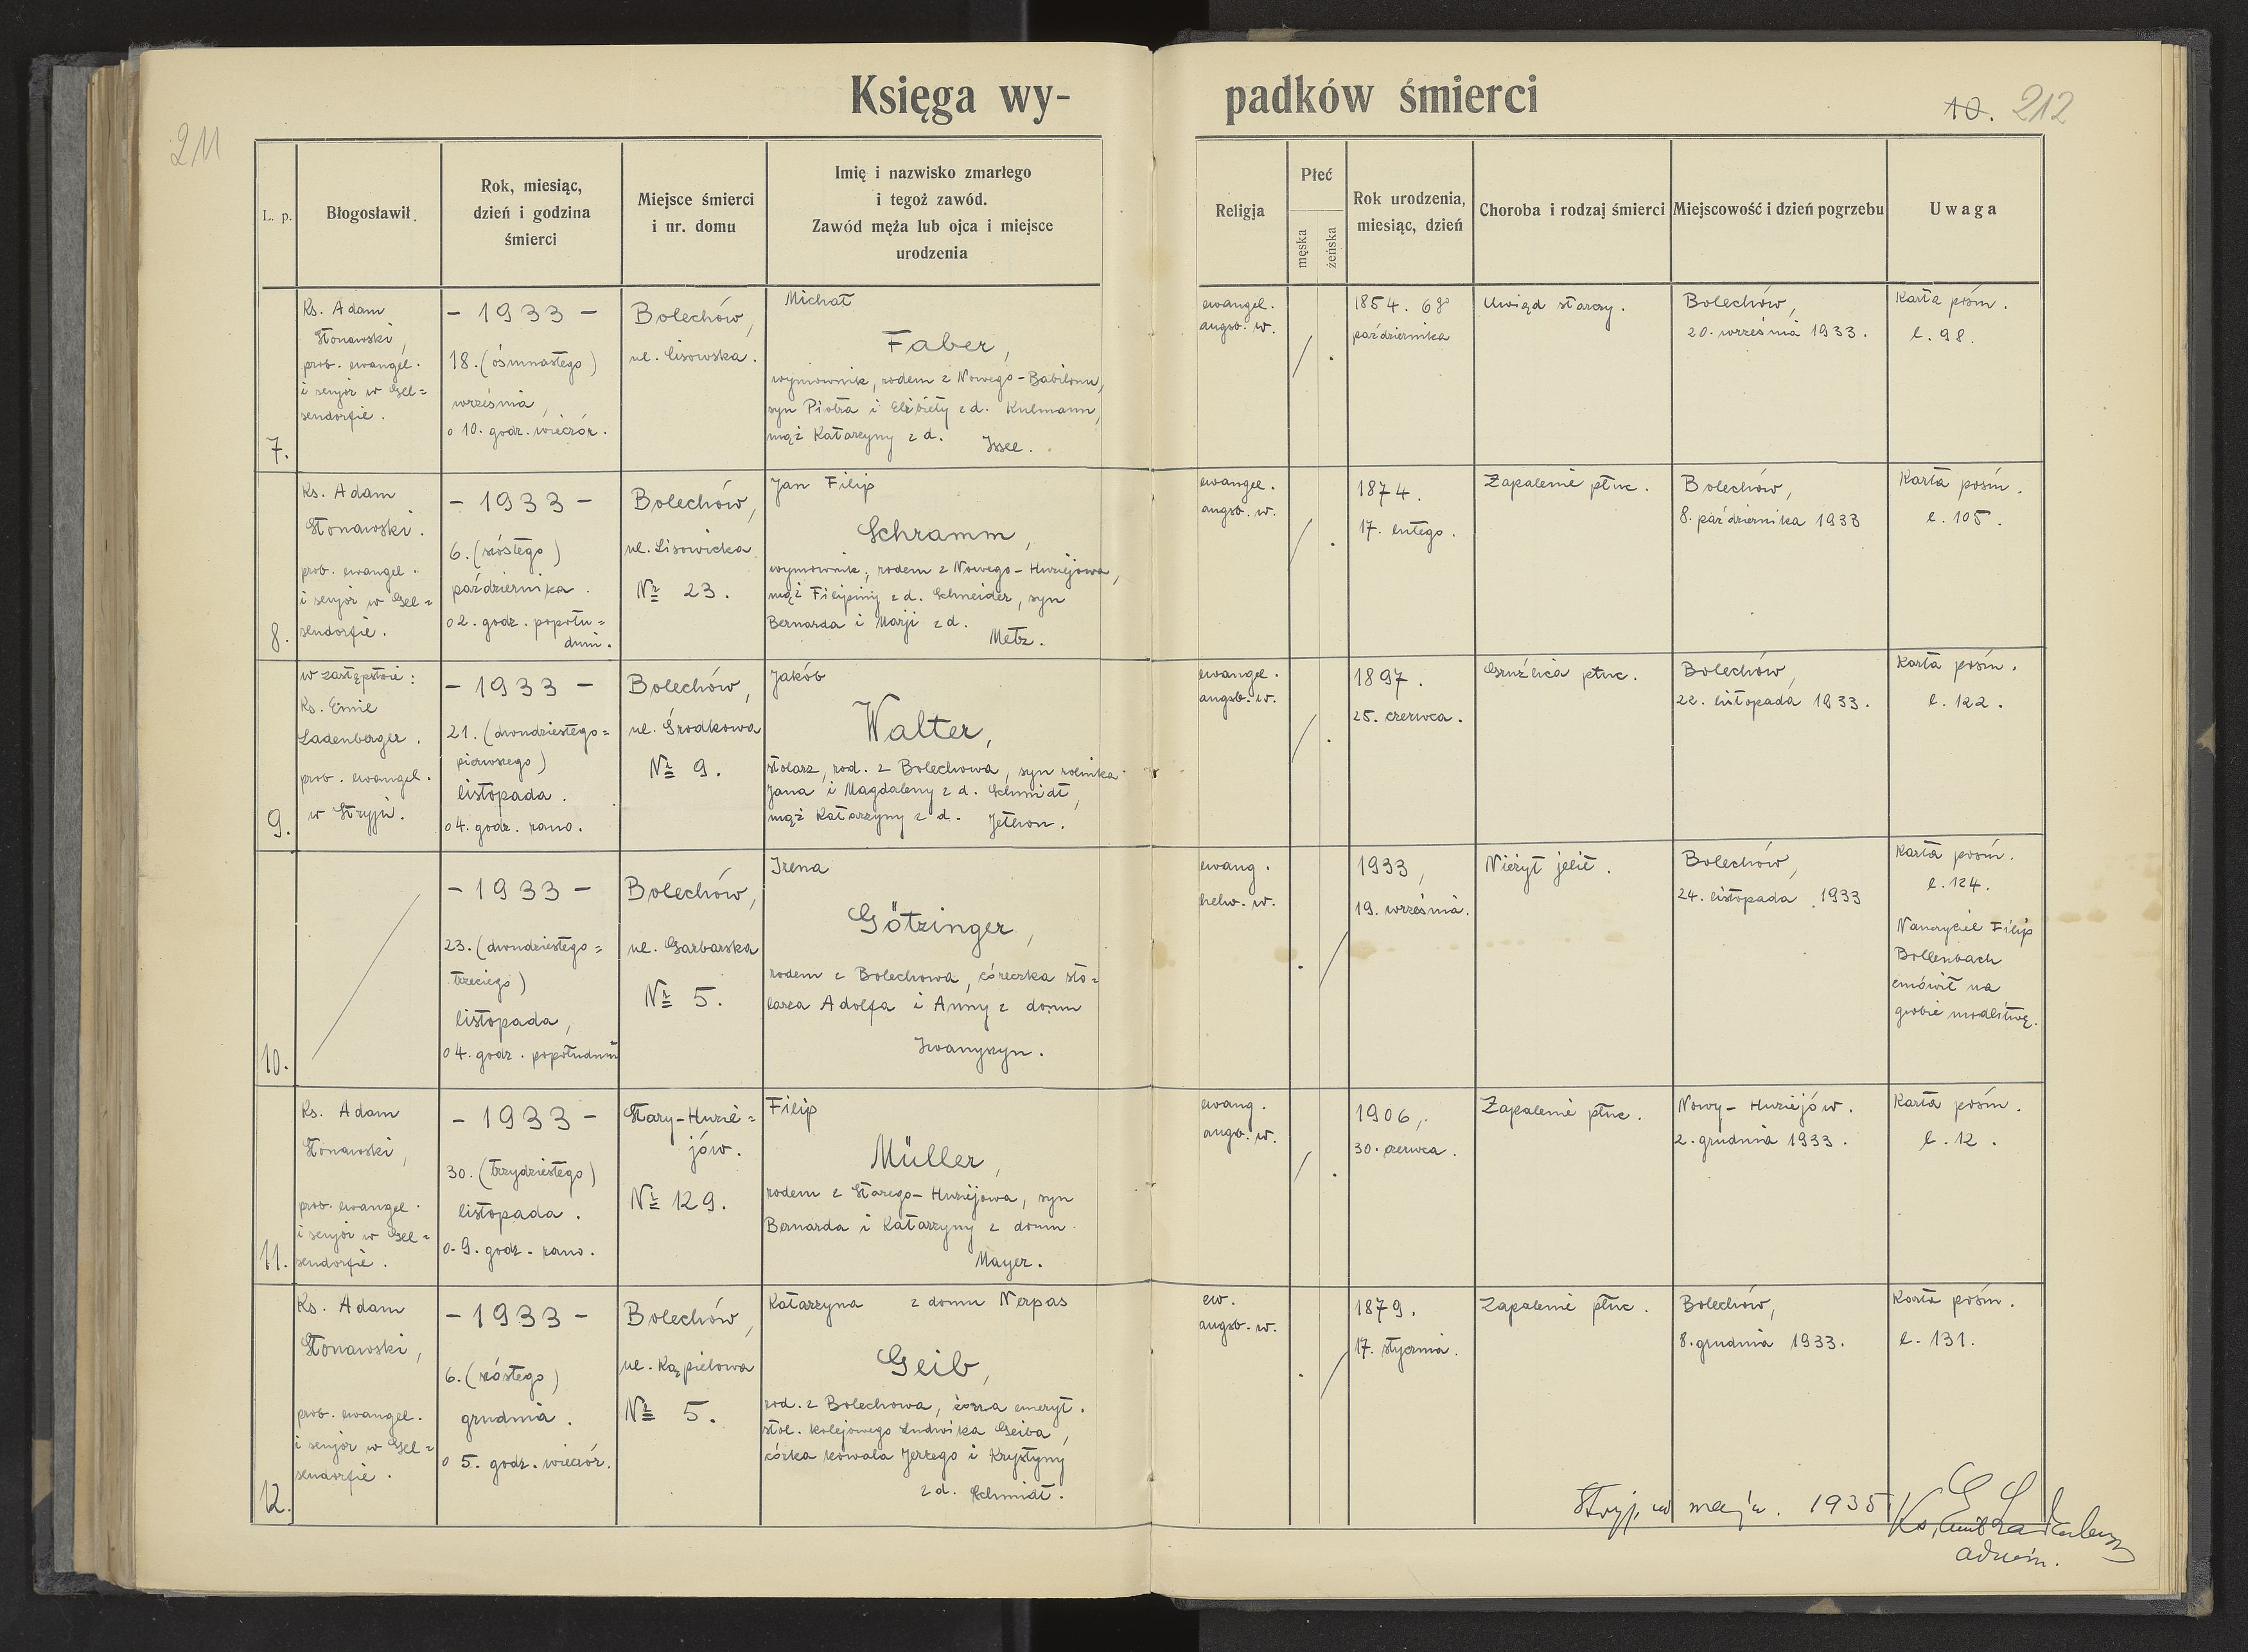 Księga wy-
padków śmierci
211
10. 212
L. p.
Błogosławił
Rok, miesiąc,
dzień i godzina
śmierci
Miejsce śmierci
i nr. domu
Imię i nazwisko zmarłego
i tegoż zawód.
Zawód męża lub ojca i miejsce
urodzenia
Religja
Płeć
męska
żeńska
Rok urodzenia,
miesiąc, dzień
Choroba i rodzaj śmierci
Miejscowość i dzień pogrzebu
Uwaga
7.
Ks. Adam
Stonawski,
prob. ewangel.
i senjor w Gel=
sendorfie.
- 1933 -
18. (ośmnastego)
września,
o 10. godz. wieczór.
Bolechów,
ul. Lisowska.
Michał
Faber,
wymownik, rodem z Nowego-Babilonu,
syn Piotra i Elżbiety z d. Kulmann,
mąż Katarzyny z d. Issel.
ewangel.
augsb. w.
/ .
1854. 6go
października
Uwiąd starczy.
Bolechów,
20. września 1933.
Karta pośm.
l. 98.
8.
Ks. Adam
Stonawski.
prob. ewangel.
i senjor w Gel=
sendorfie.
- 1933 -
6. (szóstego)
października.
o 2. godz. popołu=
dniu.
Bolechów,
ul. Lisowicka
Nr 23.
Jan Filip
Schramm,
wymownik, rodem z Nowego-Huziejowa,
mąż Filipiny z d. Schneider, syn
Bernarda i Marji z d.
Metz.
ewangel.
augsb. w.
/ .
1874.
17. lutego.
Zapalenie płuc.
Bolechów,
8. października 1933
Karta pośm.
l. 105.
9.
w zastępstwie:
Ks. Emil
Ladenberger.
prob. ewangel.
w Stryju.
- 1933 -
21. (dwudziestego=
pierwszego)
listopada.
o 4. godz. rano.
Bolechów,
ul. Środkowa
Nr 9.
Jakób
Walter,
stolarz, rod. z Bolechowa, syn rolnika
Jana i Magdaleny z d. Schmidt,
mąż Katarzyny z d. Jethon.
ewangel.
augsb. w.
/ .
1897.
25. czerwca.
Gruźlica płuc.
Bolechów,
22. listopada 1933.
Karta pośm.
l. 122.
10.
- 1933 -
23. (dwudziestego=
trzeciego)
listopada,
o 4. godz. popołudniu
Bolechów,
ul. Garbarska
Nr 5.
Irena
Götzinger,
rodem z Bolechowa, córeczka sto=
larza Adolfa i Anny z domu
Iwanyszyn.
ewang.
helw. w.
. /
1933,
19. września.
Nieżyt jelit.
Bolechów,
24. listopada 1933
Karta pośm.
l. 124.
Nauczyciel Filip
Bollenbach
zmówił na
grobie modlitwę.
11.
Ks. Adam
Stonawski,
prob. ewangel.
i senjor w Gel=
sendorfie.
- 1933 -
30. (trzydziestego)
listopada.
o 9. godz. rano.
Stary-Huzie=
jów.
Nr 129.
Filip
Müller,
rodem z Starego-Huziejowa, syn
Bernarda i Katarzyny z domu
Mayer.
ewang.
augb. w.
/ .
1906,
30. czerwca.
Zapalenie płuc.
Nowy-Huziejów.
2. grudnia 1933.
Karta pośm.
l. 12.
12.
Ks. Adam
Stonawski,
prob. ewangel.
i senjor w Gel=
sendorfie.
- 1933 -
6. (szóstego)
grudnia.
o 5. godz. wieczór.
Bolechów,
ul. Kąpielowa
Nr 5.
Katarzyna z domu Nerpas
Geib,
rod. z Bolechowa, żona emeryt.
stol. kolejowego Ludwika Geiba,
córka kowala Jerzego i Krystyny
z d. Schmidt.
ew.
augsb. w.
. /
1879.
17. stycznia.
Zapalenie płuc.
Bolechów,
8. grudnia 1933.
Karta pośm.
l. 131.
Stryj, w maju. 1935
Ks. Emil Ladenberger
admin.